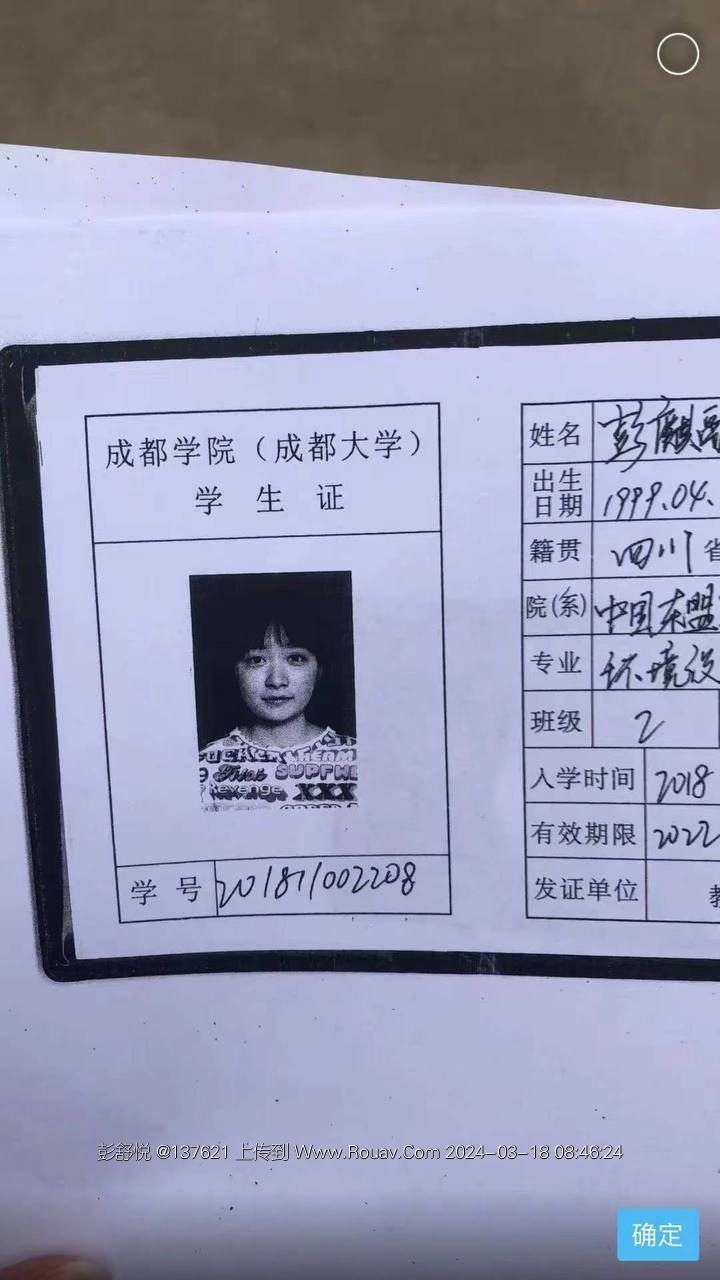 成都学院（成都大学）
学 生 证
FUCKER
SUPREME
Revenge
XXX
学 号 201811002208
姓名 彭麒
出生日期 1999.04.
籍贯 四川 省
院(系) 中国东盟
专业 环境设
班级 2
入学时间 2018
有效期限 2022
发证单位 教
彭舒悦 @137621 上传到 Www.Rouav.Com 2024-03-18 08:46:24
确定